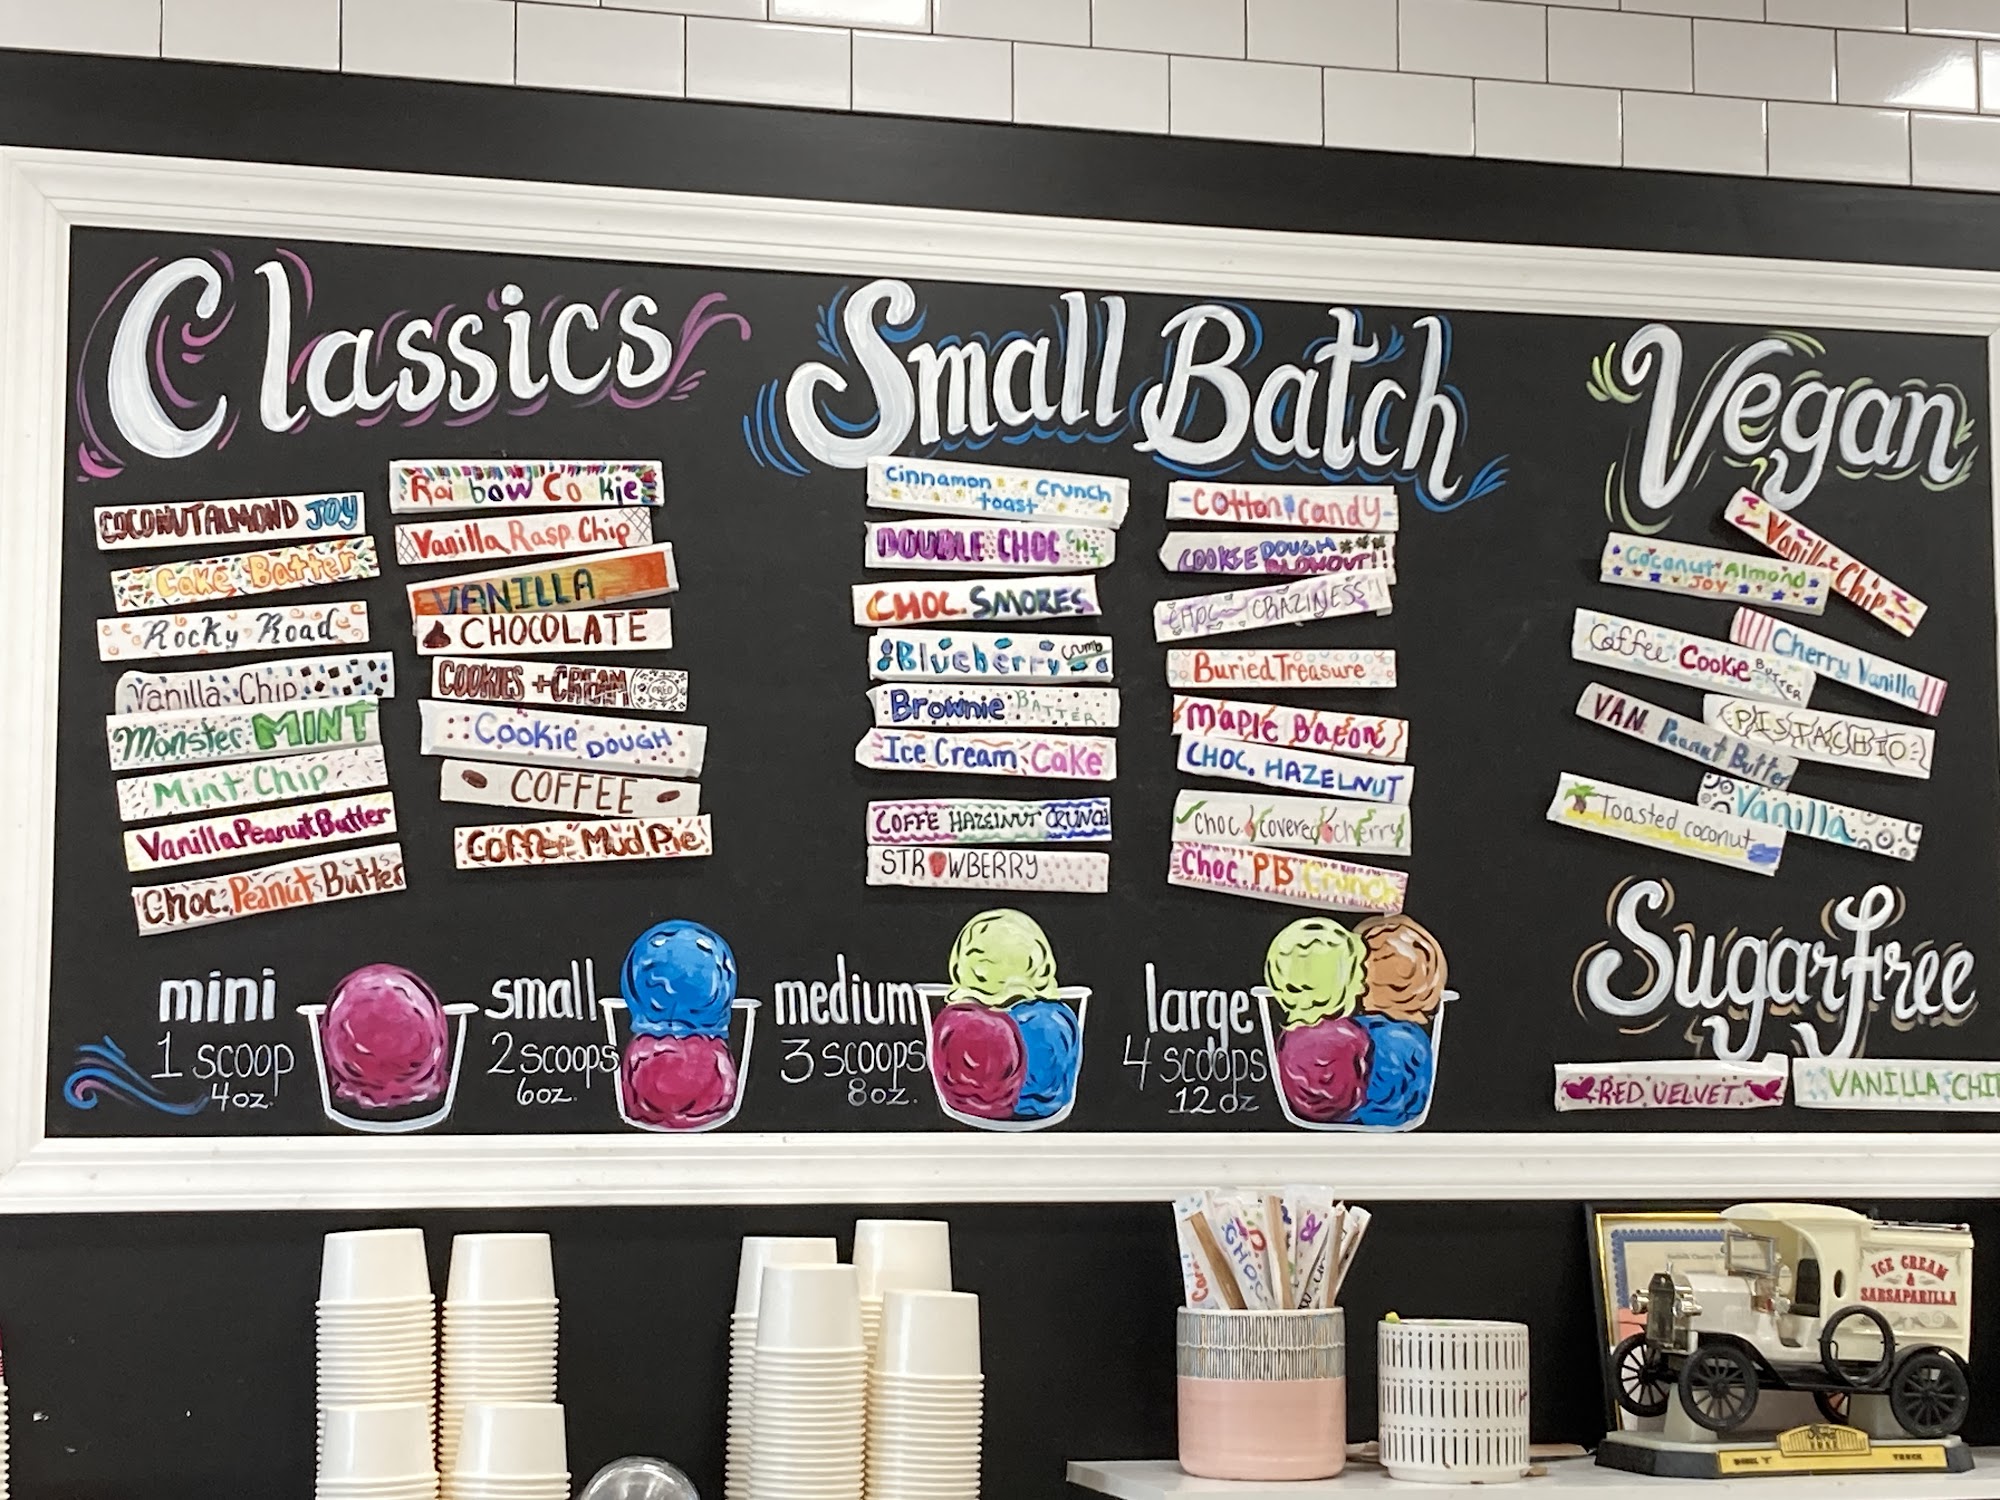 Classics
COCONUT ALMOND JOY
Cake Batter
Rocky Road
Vanilla Chip
Monster MINT
Mint Chip
Vanilla Peanut Butter
Choc. Peanut Butter
Rainbow Cookie
Vanilla Rasp. Chip
VANILLA
CHOCOLATE
COOKIES + CREAM
OREO
Cookie DOUGH
COFFEE
Coffee Mud Pie
Small Batch
Cinnamon toast crunch
DOUBLE CHOC CHI
CHOC. SMORES
Blueberry crumb
Brownie BATTER
Ice Cream Cake
COFFE HAZELNUT CRUNCH
STRAWBERRY
-Cotton candy-
COOKIE DOUGH
BLOWOUT!!
CHOC CRAZINESS!
Buried Treasure
Maple Bacon
CHOC. HAZELNUT
choc. covered cherry
Choc. PB Crunch
Vegan
Vanilla Chip
Coconut Almond
JOY
Cherry Vanilla
Coffee Cookie BUTTER
PISTACHIO
VAN Peanut Butter
Vanilla
Toasted coconut
Sugar free
RED VELVET
VANILLA CHI
mini
1 scoop
4oz.
small
2 scoops
6oz.
medium
3 scoops
8oz.
large
4 scoops
12 oz
ICE CREAM
&
SARSAPARILLA